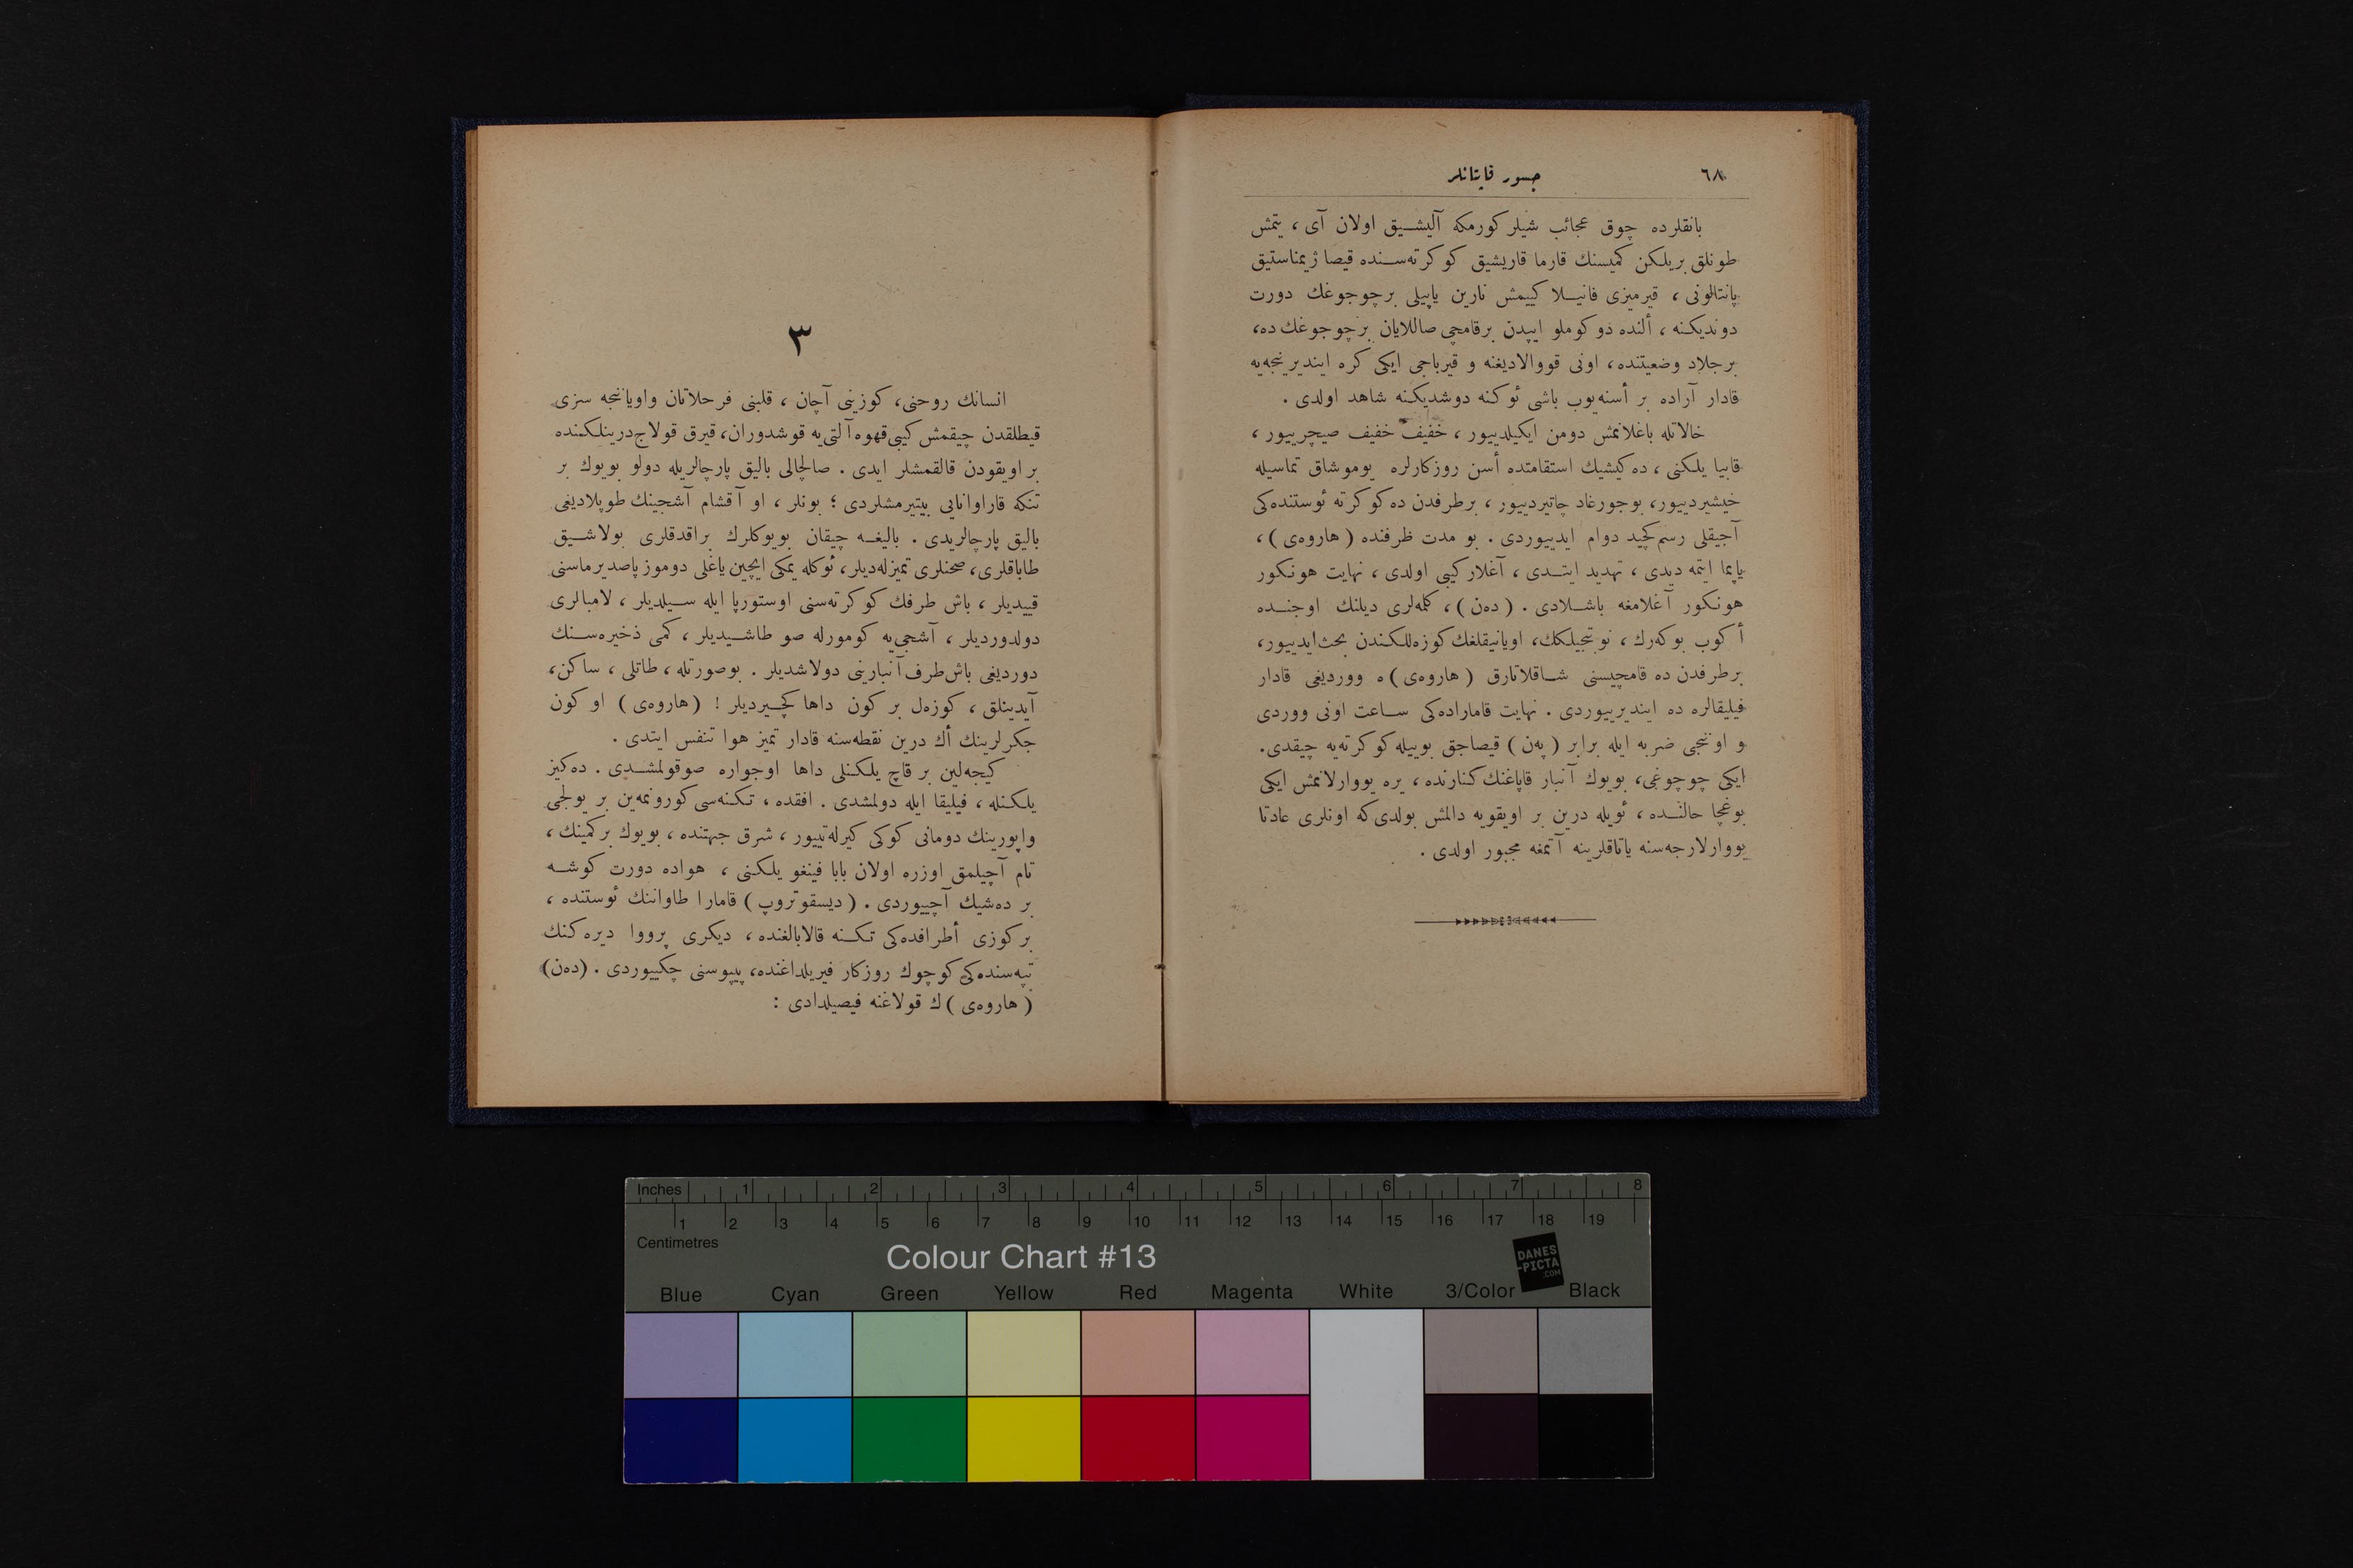 ٦٨
جسور قاپتانلر
بانقلرده چوق عجائب شيلر كورمكه آليشيق اولان آى ، يتمش
طونلق بريلكن كميسنك قارما قاريشيق كوكرته‌سنده قيصا ژيمناستيق
پانتالونى ، قيرميزى فانيلا كييمش نارين ياپيلى برچوجوغك دورت
دونديكنه ، ألنده دوكوملو ايپدن برقامچى صاللايان برچوجوغك ده،
برجلاد وضعيتنده، اونى قووالاديغنه و قيرباجى ايكى كره اينديرنجه‌يه
قادار آراده بر أسنه‌يوب باشى ئوكنه دوشديكنه شاهد اولدى .
خالاتله باغلانمش دومن ايكيلدييور ، خفيف خفيف صيچرييور ،
قابيا يلكنى ، ده‌كيشيك استقامتده أسن روزكارلره يوموشاق تماسيله
خيشيردييور، بوجورغاد چاتيردييور ، برطرفدن ده كوكرته ئوستنده‌كى
آجيقلى رسم‌كچيد دوام ايدييوردى . بو مدت ظرفنده (هاروه‌ى) ،
ياپما ايتمه ديدى ، تهديد ايتدى ، آغلاركيى اولدى ، نهايت هونكور
هونكور آغلامغه باشلادى . (ده‌ن) ، كلمه‌لرى ديلنك اوجنده
أكوب بوكه‌رك ، نوبتجيلكك، اويانيقلغك كوزه‌للكندن بحث‌ايدييور،
برطرفدن ده قامچيسنى شاقلاتارق (هاروه‌ى)ه ووردىغى قادار
فيليقالره ده اينديرييوردى . نهايت قاماراده‌كى ساعت اونى ووردى
و اوننجى ضربه ايله برابر (په‌ن) قيصاجق بوييله كوكرته‌يه چيقدى.
ايكى چوجوغى، بويوك آنبار قاپاغنك‌كنارنده ، يره يووارلانمش ايكى
بوغچا حالنده ، ئويله درين بر اويقويه دالمش بولدى‌كه اونلرى عادتا
يووارلارجه‌سنه ياتاقلرينه آتمغه مجبور اولدى .
٣
انسانك روحنى، كوزينى آچان ، قلبنى فرحلاتان واوياننجه سزى
قيطلقدن چيقمش كيبى قهوه‌آلتى‌يه قوشدوران، قيرق قولاج درينلكنده
بر اويقودن قالقمشلر ايدى . صالچالى باليق پارچالريله دولو بويوك بر
تنكه قاراوانايى بيتيرمشلردى ؛ بونلر ، او آقشام آشجينك طوپلاديغى
باليق پارچالريدى . باليغه چيقان بويوكلرك براقدقلرى بولاشيق
طاباقلرى، صحنلرى تميزله‌ديلر، ئوكله يمكى ايچين ياغلى دوموز پاصديرماسنى
قييديلر ، باش طرفك كوكرته‌سنى اوستورپا ايله سيلديلر ، لامبالرى
دولدورديلر ، آشجى‌يه كومورله صو طاشيديلر ، كمى ذخيره‌سنك
دورديغى باش‌طرف آنبارينى دولاشديلر . بوصورتله ، طاتلى ، ساكن،
آيدينلق ، كوزه‌ل بر كون داها كچيرديلر ! (هاروه‌ى) او كون
جكرلرينك أك درين نقطه‌سنه قادار تميز هوا تنفس ايتدى .
كيجه‌لين بر قاچ يلكنلى داها اوجواره صوقولمشدى . ده‌كيز
يلكنله ، فيليقا ايله دولمشدى . افقده ، تكنه‌سى كورونمه‌ين بر يولجى
واپورينك دومانى كوكى كيرله‌تييور ، شرق جهتنده ، بويوك بركمينك ،
تام آچيلمق اوزره اولان بابا فينغو يلكنى ، هواده دورت كوشه
بر ده‌شيك آچييوردى . (ديسقوتروپ) قامارا طاواننك ئوستنده ،
بركوزى أطرافده‌كى تكنه قالابالغنده ، ديكرى پرووا ديره‌كنك
تپه‌سنده‌كى كوچوك روزكار فيريلداغنده، پيپوسنى چكييوردى . (ده‌ن)
(هاروه‌ى)ك قولاغنه فيصيلدادى :
Inches 1 2 3 4 5 6 7 8
1 2 3 4 5 6 7 8 9 10 11 12 13 14 15 16 17 18 19
Centimetres
Colour Chart #13
DANES
-PICTA
.COM
Blue Cyan Green Yellow Red Magenta White 3/Color Black